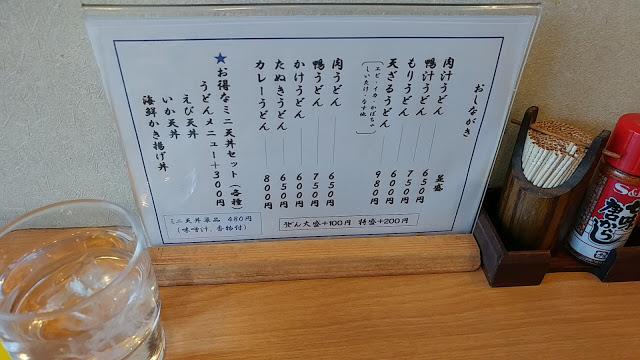 おしながき
並盛
肉汁うどん 650円
鴨汁うどん 750円
もりうどん 600円
天ざるうどん 980円
(エビ・イカ・かぼちゃ
しいたけ・なす他)
肉うどん 650円
鴨うどん 750円
かけうどん 600円
たぬきうどん 650円
カレーうどん 800円
★お得なミニ天丼セット(各種)
うどんメニュー+300円
えび天丼
いか天丼
海鮮かき揚げ丼
ミニ天丼単品 480円
(味噌汁、香物付)
うどん大盛+100円 特盛+200円
S&B
唐からし